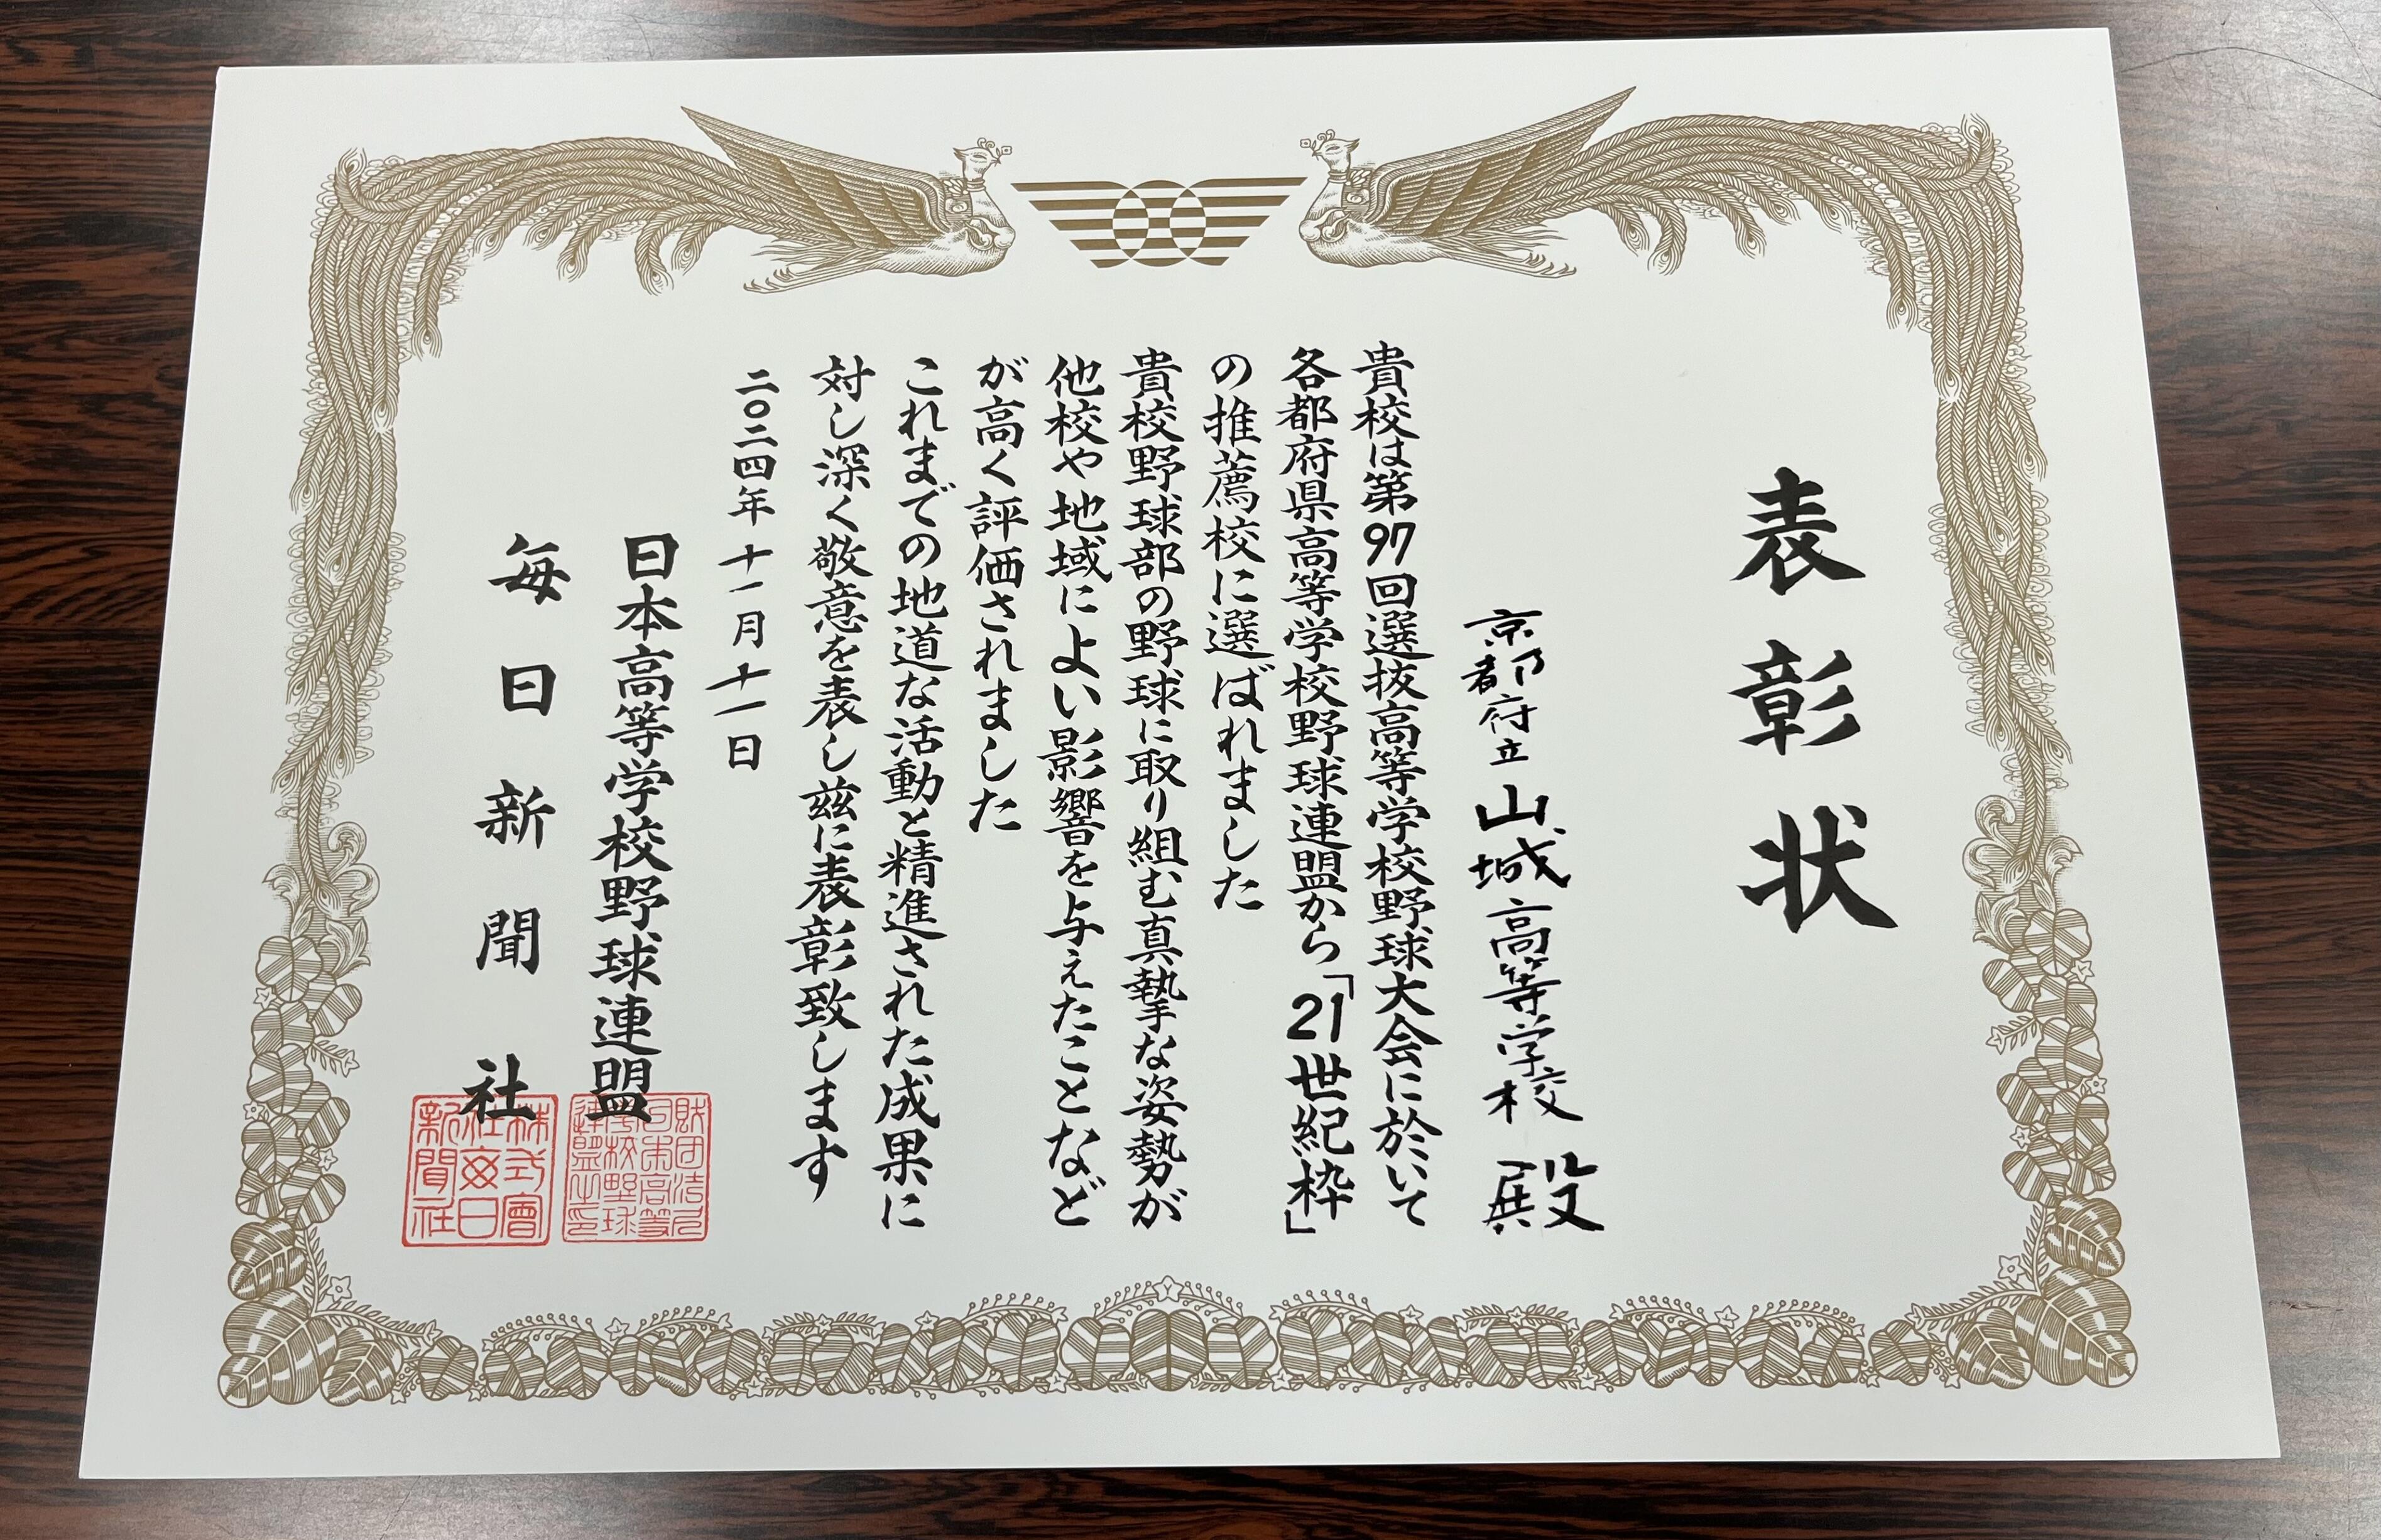 表彰状
京都府立山城高等学校殿
貴校は第97回選抜高等学校野球大会に於いて
各都府県高等学校野球連盟から「21世紀枠」
の推薦校に選ばれました
貴校野球部の野球に取り組む真摯な姿勢が
他校や地域によい影響を与えたことなど
が高く評価されました
これまでの地道な活動と精進された成果に
対し深く敬意を表し茲に表彰致します
二〇二四年十一月十一日
日本高等学校野球連盟
毎日新聞社